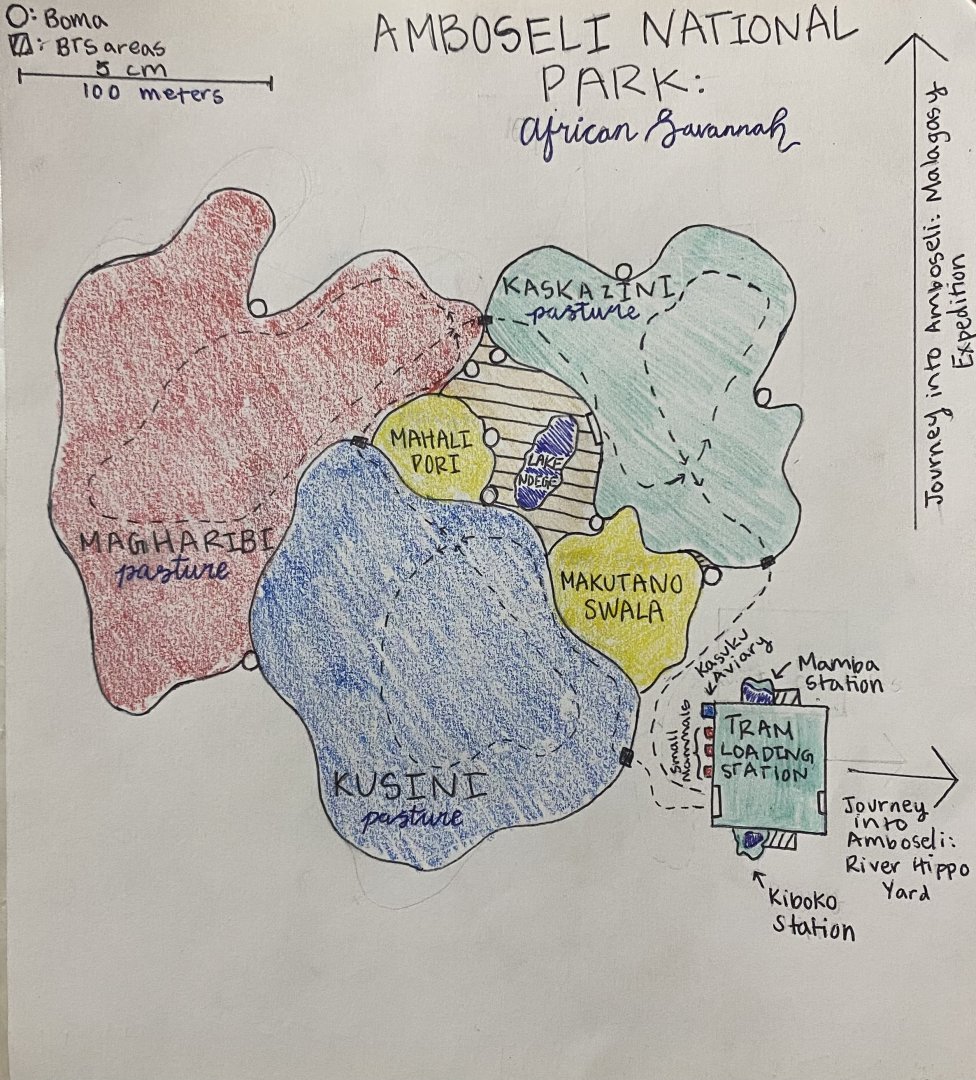 O: Boma
: BTS areas
5 cm
100 meters
AMBOSELI NATIONAL
PARK:
African Savannah
Journey into Amboseli: Malagasy
Expedition
KASKAZINI
pasture
MAHALI
PORI
LAKE
NDEGE
MAGHARIBI
pasture
MAKUTANO
SWALA
Kasuku
Aviary
Mamba
Station
Small
Mammals
TRAM
LOADING
STATION
KUSINI
pasture
Journey
into
Amboseli:
River Hippo
Yard
Kiboko
Station